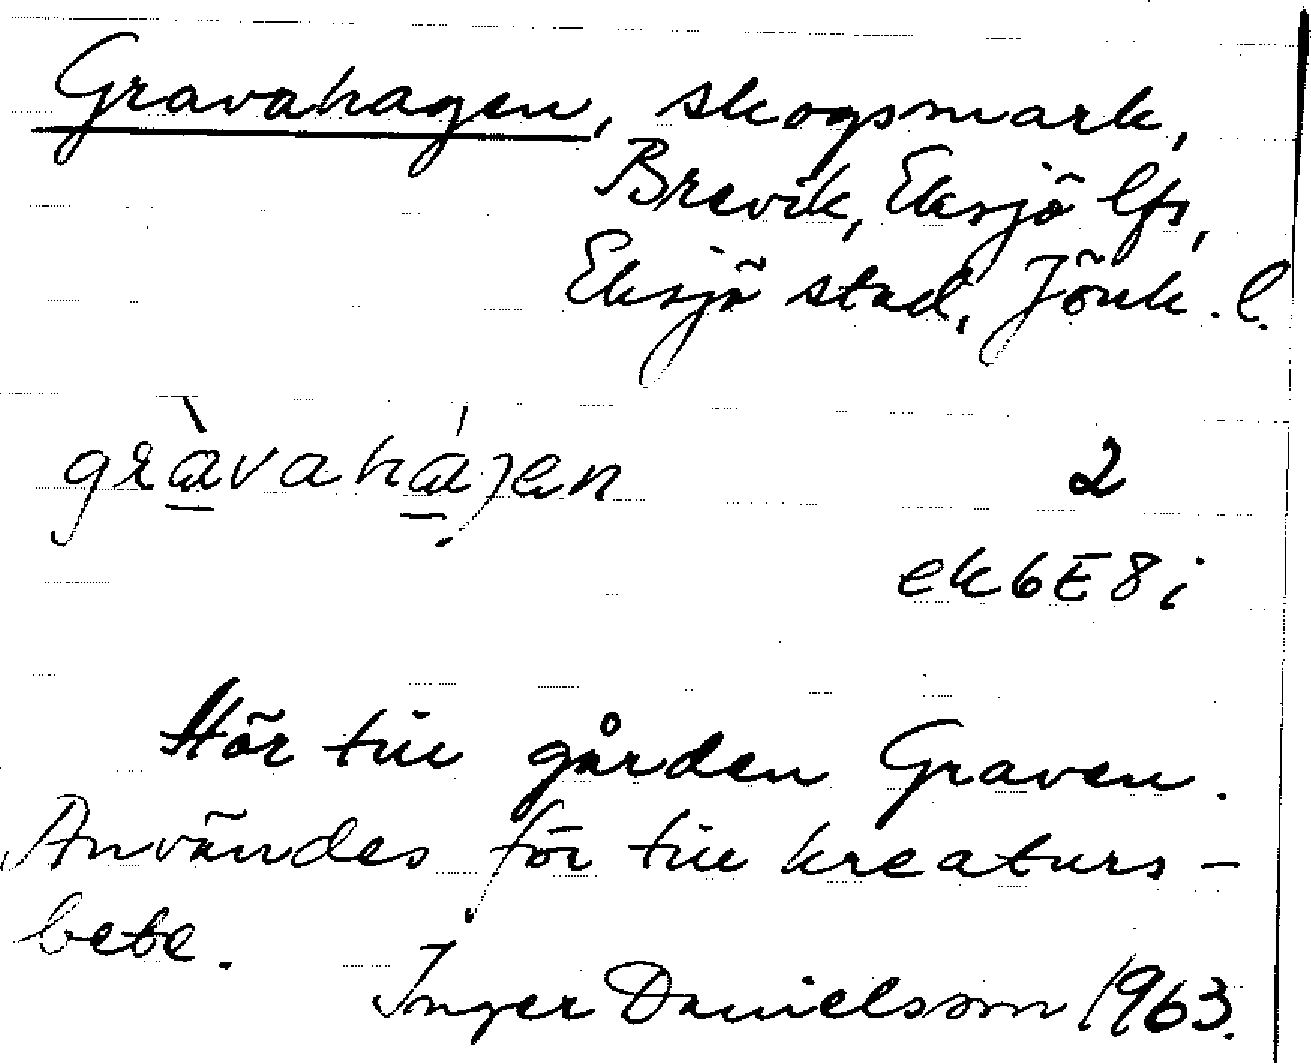 Gravahagen, skogsmark,
Brevik, Eksjö lfs,
Eksjö stad, Jönk. l.
gràvahájen 2
ek6E8i
Hör till gården Graven.
Användes förr till kreaturs-
bete.
Inger Danielsson 1963.